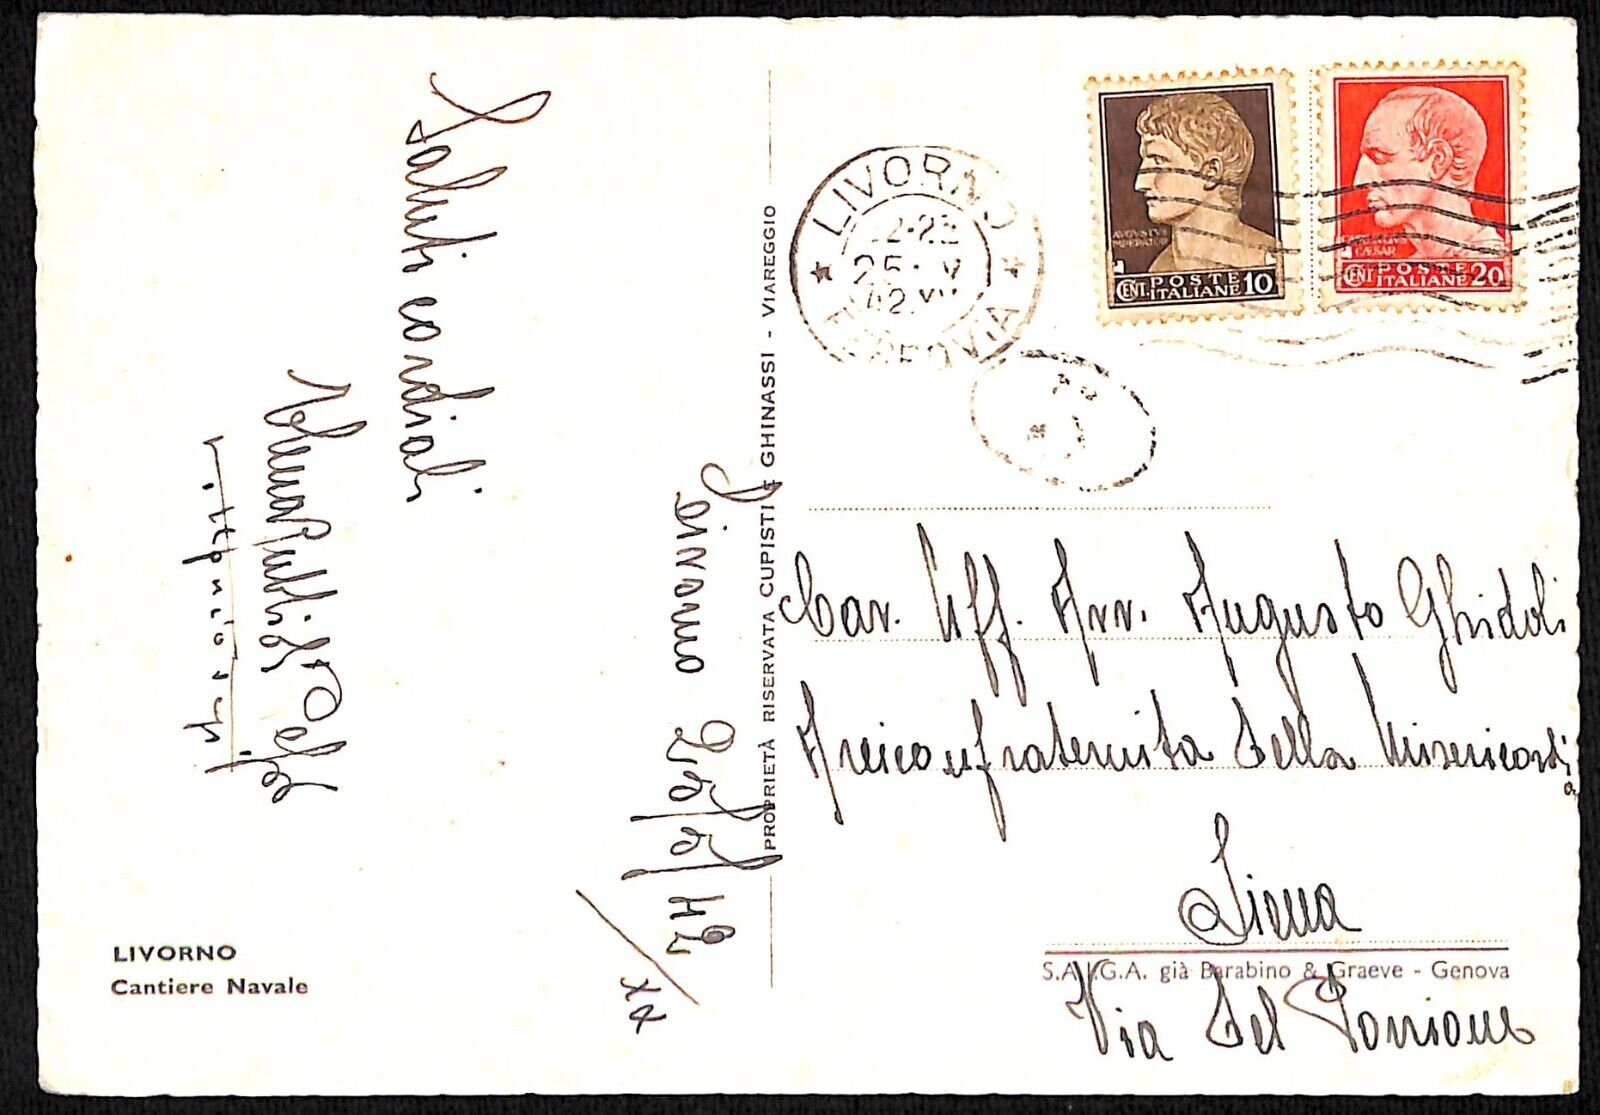 Saluti cordiali
Livorno 25/5/42
XX
PROPRIETÀ RISERVATA CUPISTI E GHINASSI - VIAREGGIO
LIVORNO
Cantiere Navale
LIVORNO
25 V
42 XX
FERROVIA
AVGVSTVS
IMPERATOR
CENT. POSTE
ITALIANE 10
CAESAR
CENT. POSTE
ITALIANE 20
Cav. Uff. Avv. Augusto Ghidoli
Arciconfraternita della Misericordia
Siena
S.A.I.G.A. già Barabino & Graeve - Genova
Via del Porrione